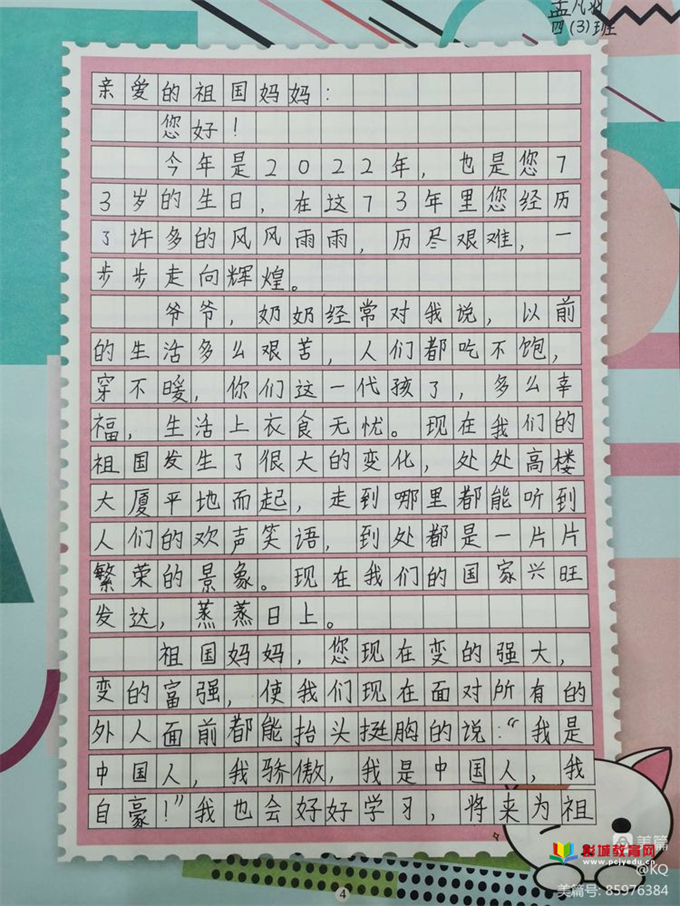 孟凡
四(3)班
亲爱的祖国妈妈：
您好！
今年是2022年，也是您7
3岁的生日，在这73年里您经历
了许多的风风雨雨，历尽艰难，一
步步走向辉煌。
爷爷，奶奶经常对我说，以前
的生活多么艰苦，人们都吃不饱，
穿不暖，你们这一代孩了，多么幸
福，生活上衣食无忧。现在我们的
祖国发生了很大的变化，处处高楼
大厦平地而起，走到哪里都能听到
人们的欢声笑语，到处都是一片片
繁荣的景象。现在我们的国家兴旺
发达，蒸蒸日上。
祖国妈妈，您现在变的强大，
变的富强，使我们现在面对所有的
外人面前都能抬头挺胸的说：“我是
中国人，我骄傲，我是中国人，我
自豪！”我也会好好学习，将来为祖
4
美篇
彭城教育网
www.pcjyedu.cn
@KQ
美篇号: 85976384